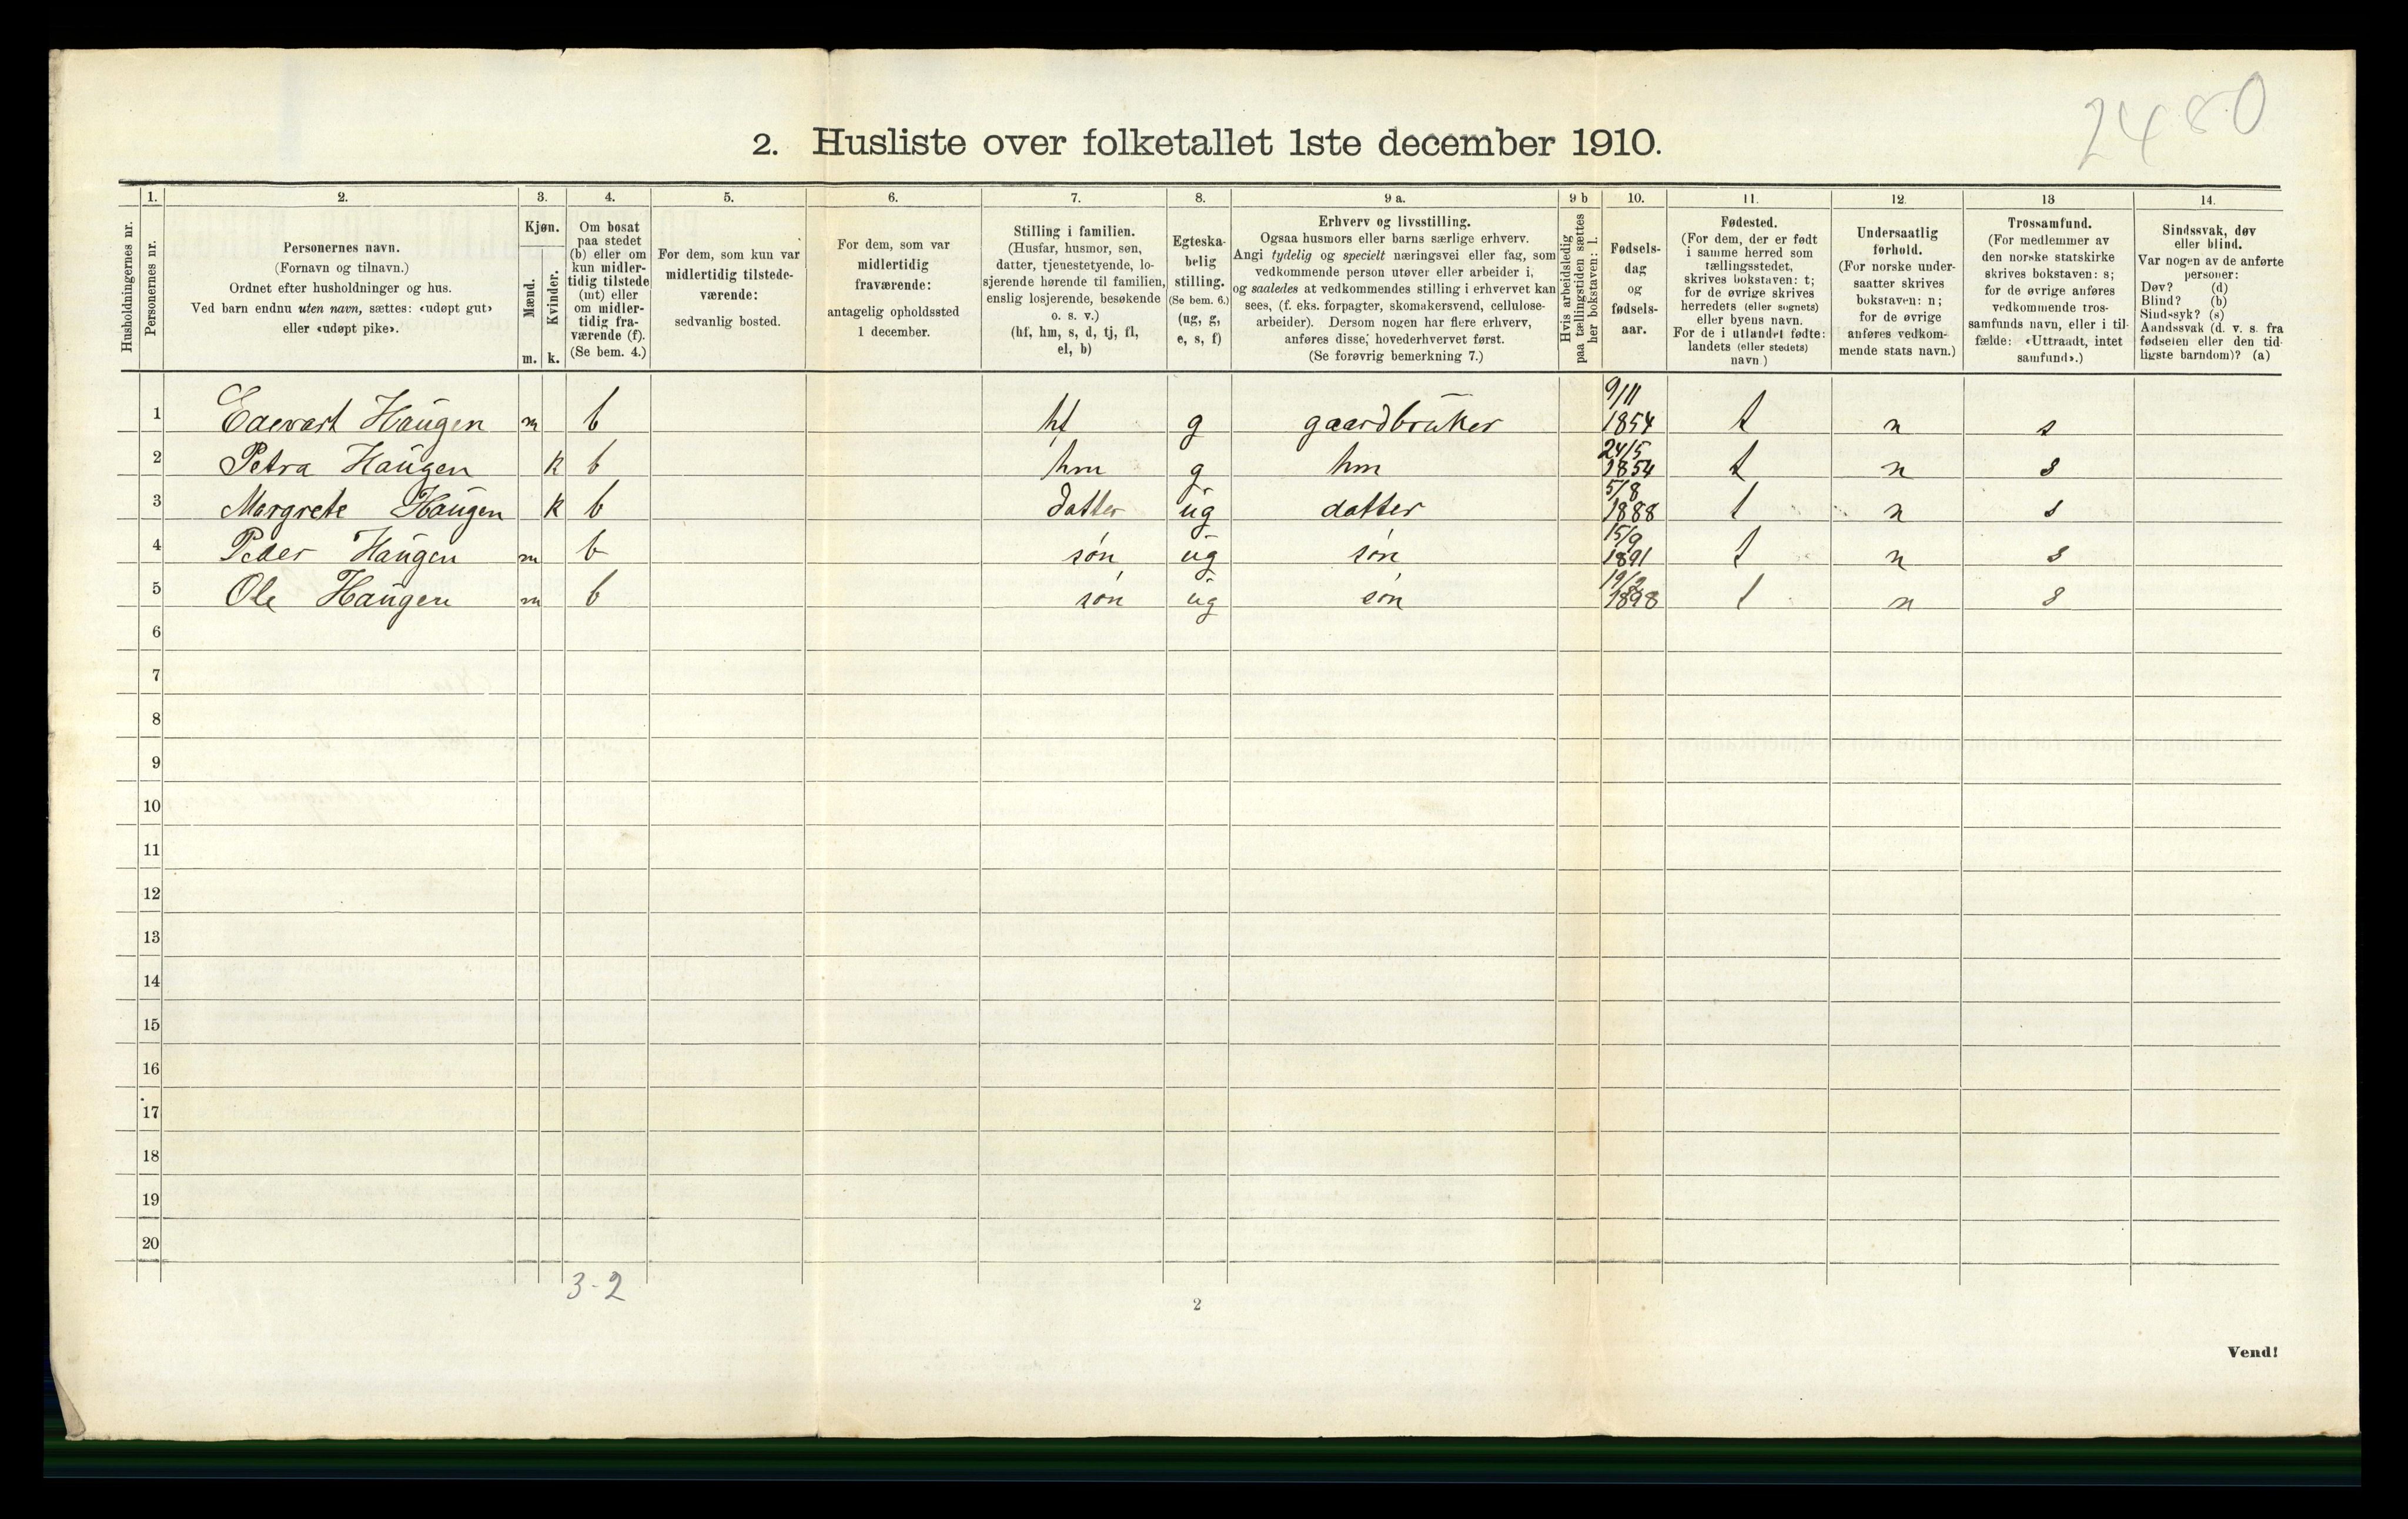 2480
2. Husliste over folketallet 1ste december 1910.
Husholdningernes nr.
1.
Personernes nr.
2.
Personernes navn.
(Fornavn og tilnavn.)
Ordnet efter husholdninger og hus.
Ved barn endnu uten navn, sættes: «udøpt gut»
eller «udøpt pike».
3.
Kjøn.
Mænd.
m.
Kvinder.
k.
4.
Om bosat
paa stedet
(b) eller om
kun midler-
tidig tilstede
(mt) eller
om midler-
tidig fra-
værende (f).
(Se bem. 4.)
5.
For dem, som kun var
midlertidig tilstede-
værende:
sedvanlig bosted.
6.
For dem, som var
midlertidig
fraværende:
antagelig opholdssted
1 december.
7.
Stilling i familien.
(Husfar, husmor, søn,
datter, tjenestetyende, lo-
sjerende hørende til familien,
enslig losjerende, besøkende
o. s. v.)
(hf, hm, s, d, tj, fl,
el, b)
8.
Egteska-
belig
stilling.
(Se bem. 6.)
(ug, g,
e, s, f)
9 a.
Erhverv og livsstilling.
Ogsaa husmors eller barns særlige erhverv.
Angi tydelig og specielt næringsvei eller fag, som
vedkommende person utøver eller arbeider i,
og saaledes at vedkommendes stilling i erhvervet kan
sees, (f. eks. forpagter, skomakersvend, cellulose-
arbeider). Dersom nogen har flere erhverv,
anføres disse, hovederhvervet først.
(Se forøvrig bemerkning 7.)
9 b
Hvis arbeidsledig
paa tællingstiden sættes
her bokstaven: l.
10.
Fødsels-
dag
og
fødsels-
aar.
11.
Fødested.
(For dem, der er født
i samme herred som
tællingsstedet,
skrives bokstaven: t;
for de øvrige skrives
herredets (eller sognets)
eller byens navn.
For de i utlandet fødte:
landets (eller stedets)
navn.)
12.
Undersaatlig
forhold.
(For norske under-
saatter skrives
bokstaven: n;
for de øvrige
anføres vedkom-
mende stats navn.)
13
Trossamfund.
(For medlemmer av
den norske statskirke
skrives bokstaven: s;
for de øvrige anføres
vedkommende tros-
samfunds navn, eller i til-
fælde: «Uttraadt, intet
samfund».)
14.
Sindssvak, døv
eller blind.
Var nogen av de anførte
personer:
Døv? (d)
Blind? (b)
Sindssyk? (s)
Aandssvak (d. v. s. fra
fødselen eller den tid-
ligste barndom)? (a)
1 Edevart Haugen m b hf g gaardbruker 9/11 1854 t n s
2 Petra Haugen k b hm g hm 24/5 1854 t n s
3 Margrete Haugen k b datter ug datter 5/8 1888 t n s
4 Peder Haugen m b søn ug søn 15/9 1891 t n s
5 Ole Haugen m b søn ug søn 19/2 1898 t n s
6
7
8
9
10
11
12
13
14
15
16
17
18
19
20
3-2
2
Vend!